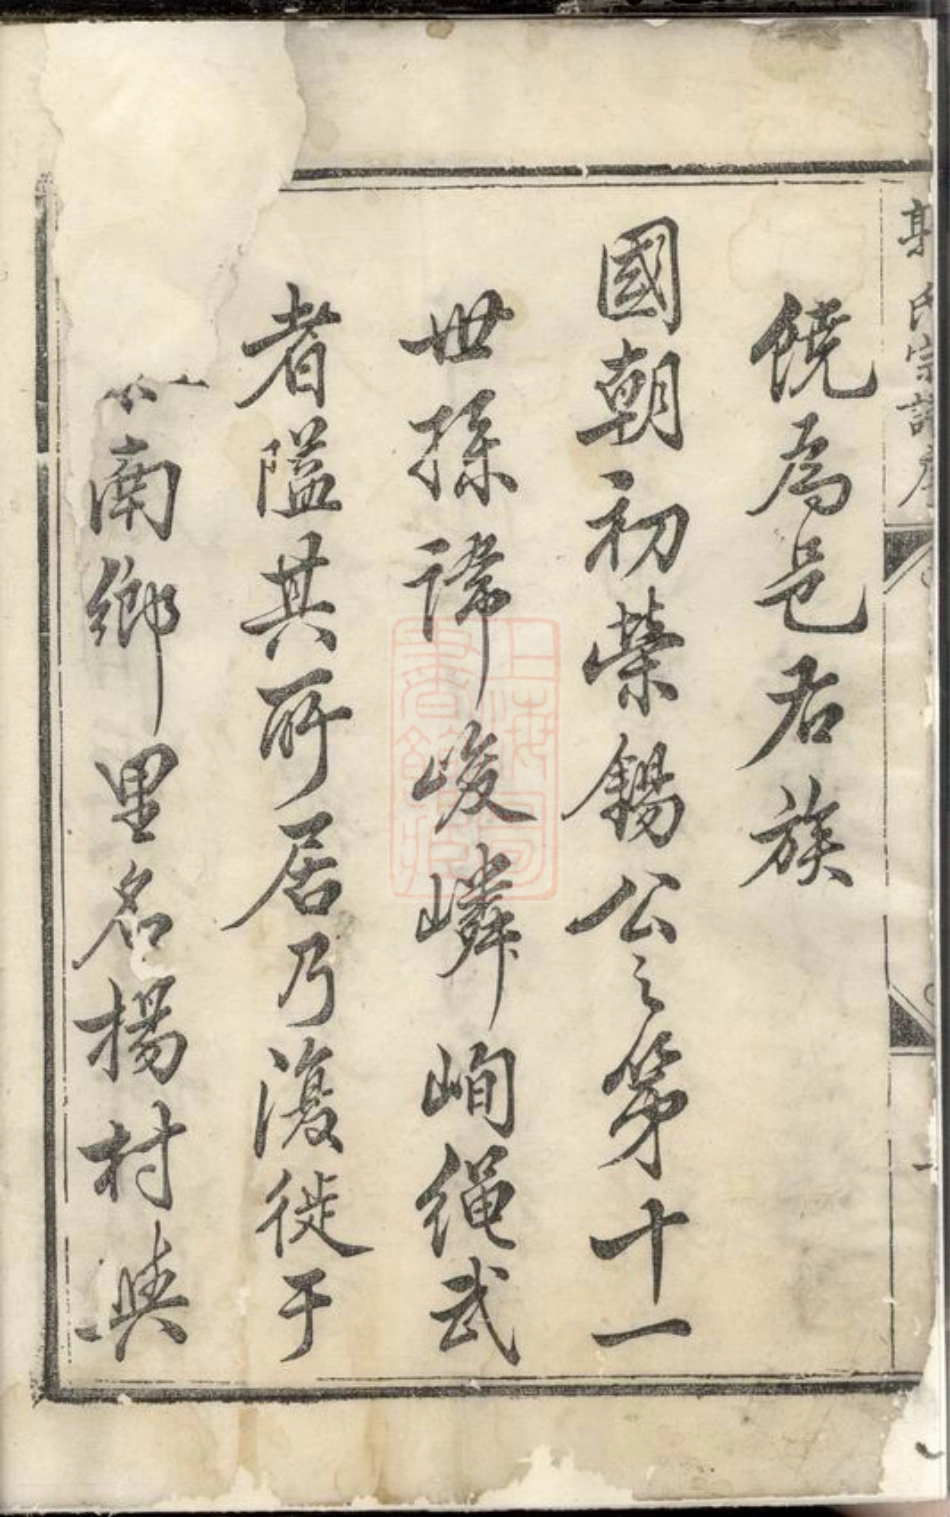 氏宗譜序
饒為邑右族
國朝初榮錫公之第十一
世孫諱峻嶙峋繩武
者隘其所居乃復徙于
南鄉里名楊村與